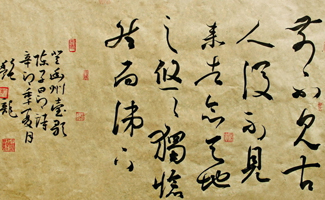 前不見古
人後不見
來者念天地
之悠々獨愴
然而涕下
登幽州臺歌
陳子昂詩
辛卯年夏月
龍